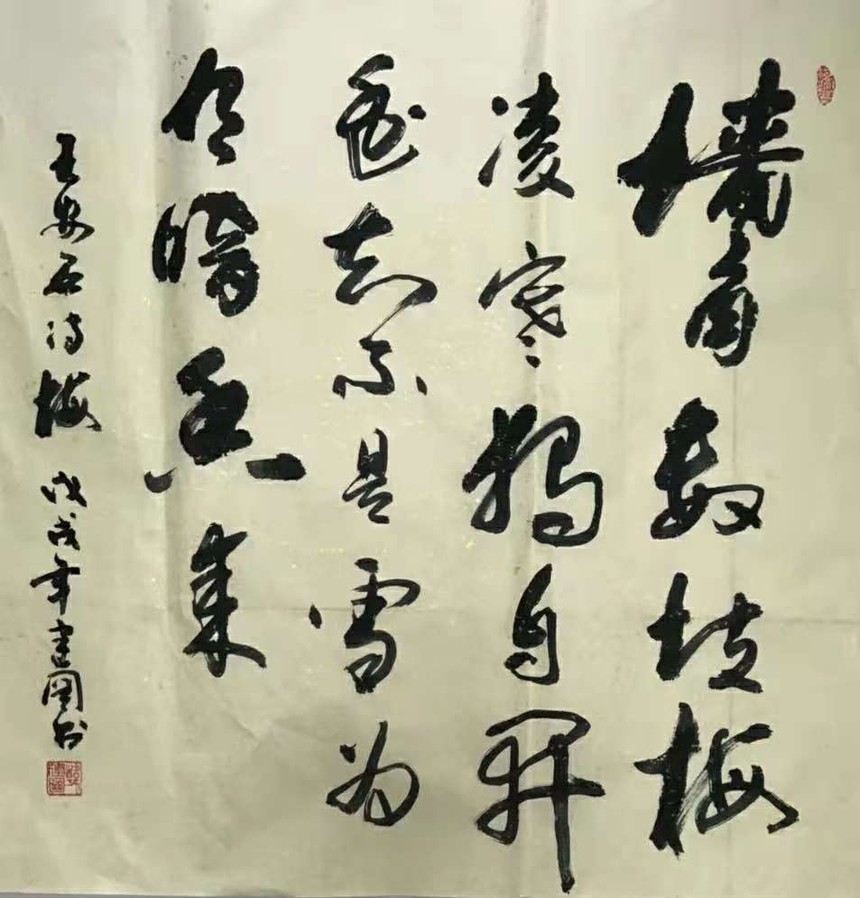 墙角数枝梅
凌寒独自开
遥知不是雪为
有暗香来
王安石诗梅 戊戌年建国书